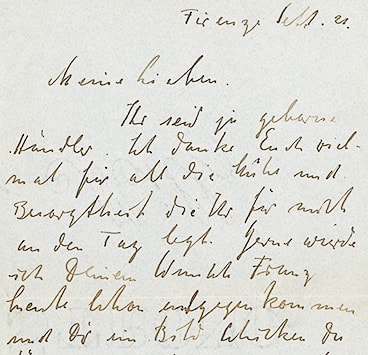 Firenze Sept. 21.
Meine Lieben.
Ihr seid ja geborne
Händler. Ich danke Euch viel-
mal für all die Mühe und
Besorgtheit die Ihr für mich
an den Tag legt. Gerne würde
ich Deinem Wunsch Franz
heute schon entgegen kommen
und Dir ein Bild schicken Du